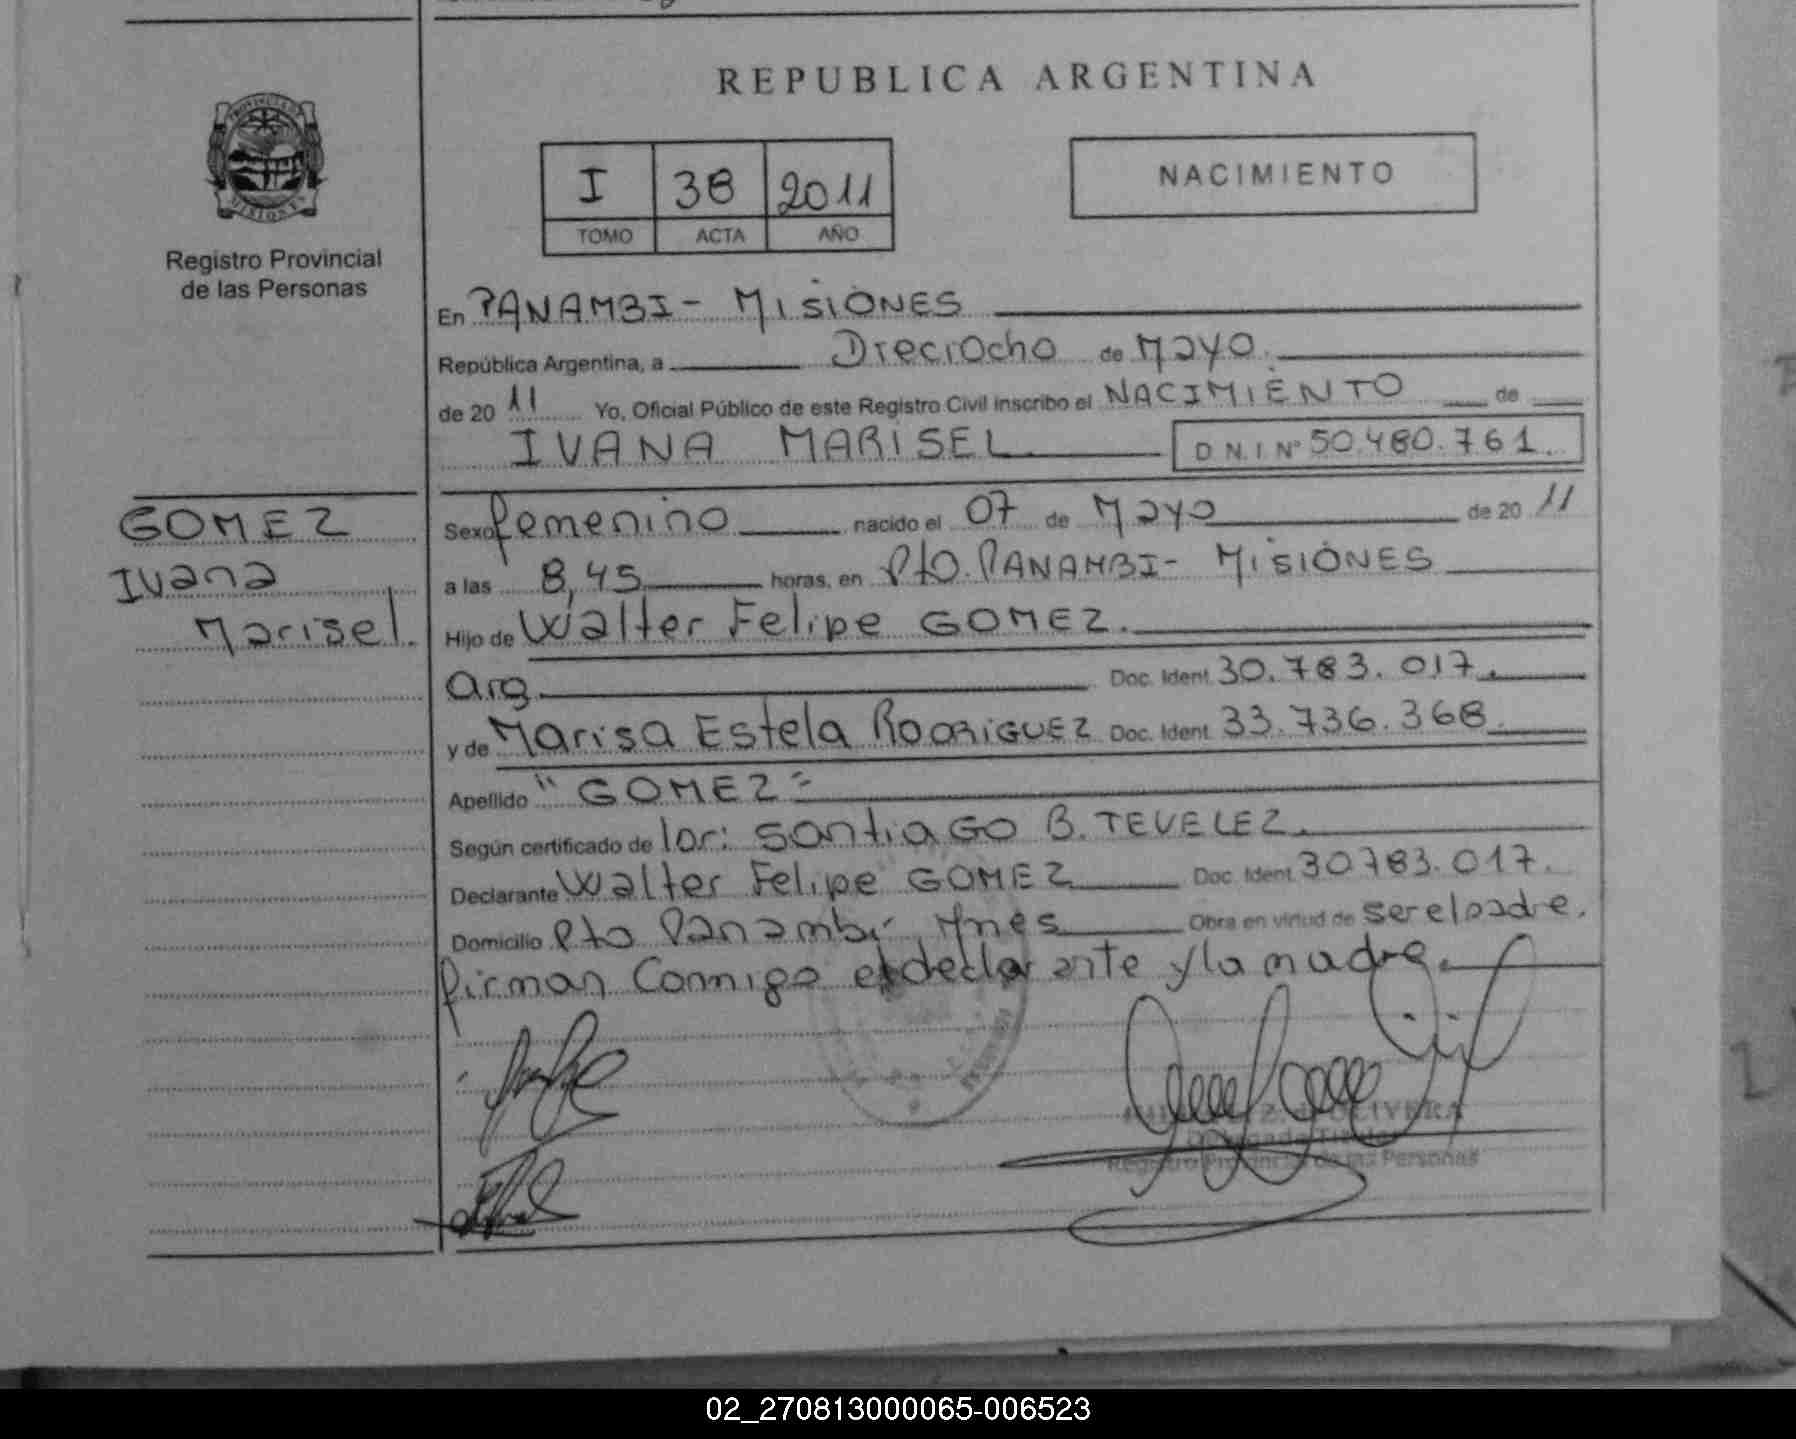 REPUBLICA ARGENTINA
PROVINCIA DE
MISIONES
Registro Provincial
de las Personas
I 38 2011
TOMO ACTA AÑO
NACIMIENTO
En PANAMBI - MISIONES
República Argentina, a Dieciocho de Mayo.
de 20 11 Yo, Oficial Público de este Registro Civil inscribo el NACIMIENTO de
IVANA MARISEL D.N.I. Nº 50.480.761.
GOMEZ
Ivana
Marisel.
Sexo femenino nacido el 07 de Mayo de 20 11
a las 8,45 horas, en Pto. PANAMBI - MISIONES
Hijo de Walter Felipe GOMEZ.
Arg. Doc. Ident. 30.783.017.
y de Marisa Estela RODRIGUEZ Doc. Ident. 33.736.368.
Apellido "GOMEZ"
Según certificado de Santiago B. TEVELEZ.
Declarante Walter Felipe GOMEZ Doc. Ident. 30783.017.
Domicilio Pto Panambi Mnes Obra en virtud de ser el padre.
firman Conmigo el declarante y la madre.
OLIVERA
Delegada Titular
Registro Provincial de las Personas
02_270813000065-006523